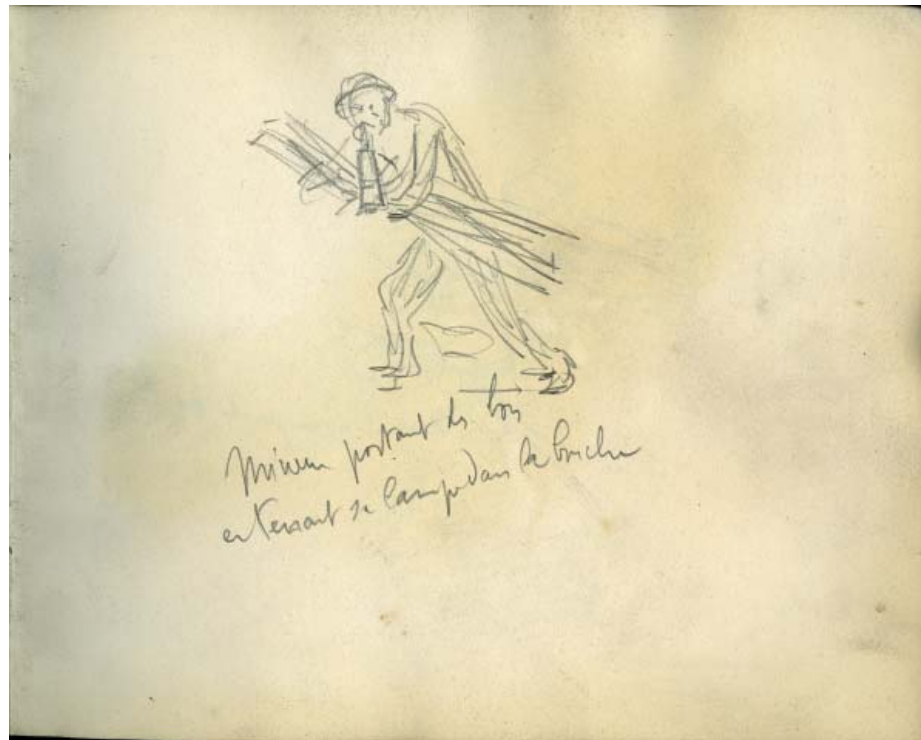 Mineur portant des bois
en tenant sa lampe dans la bouche